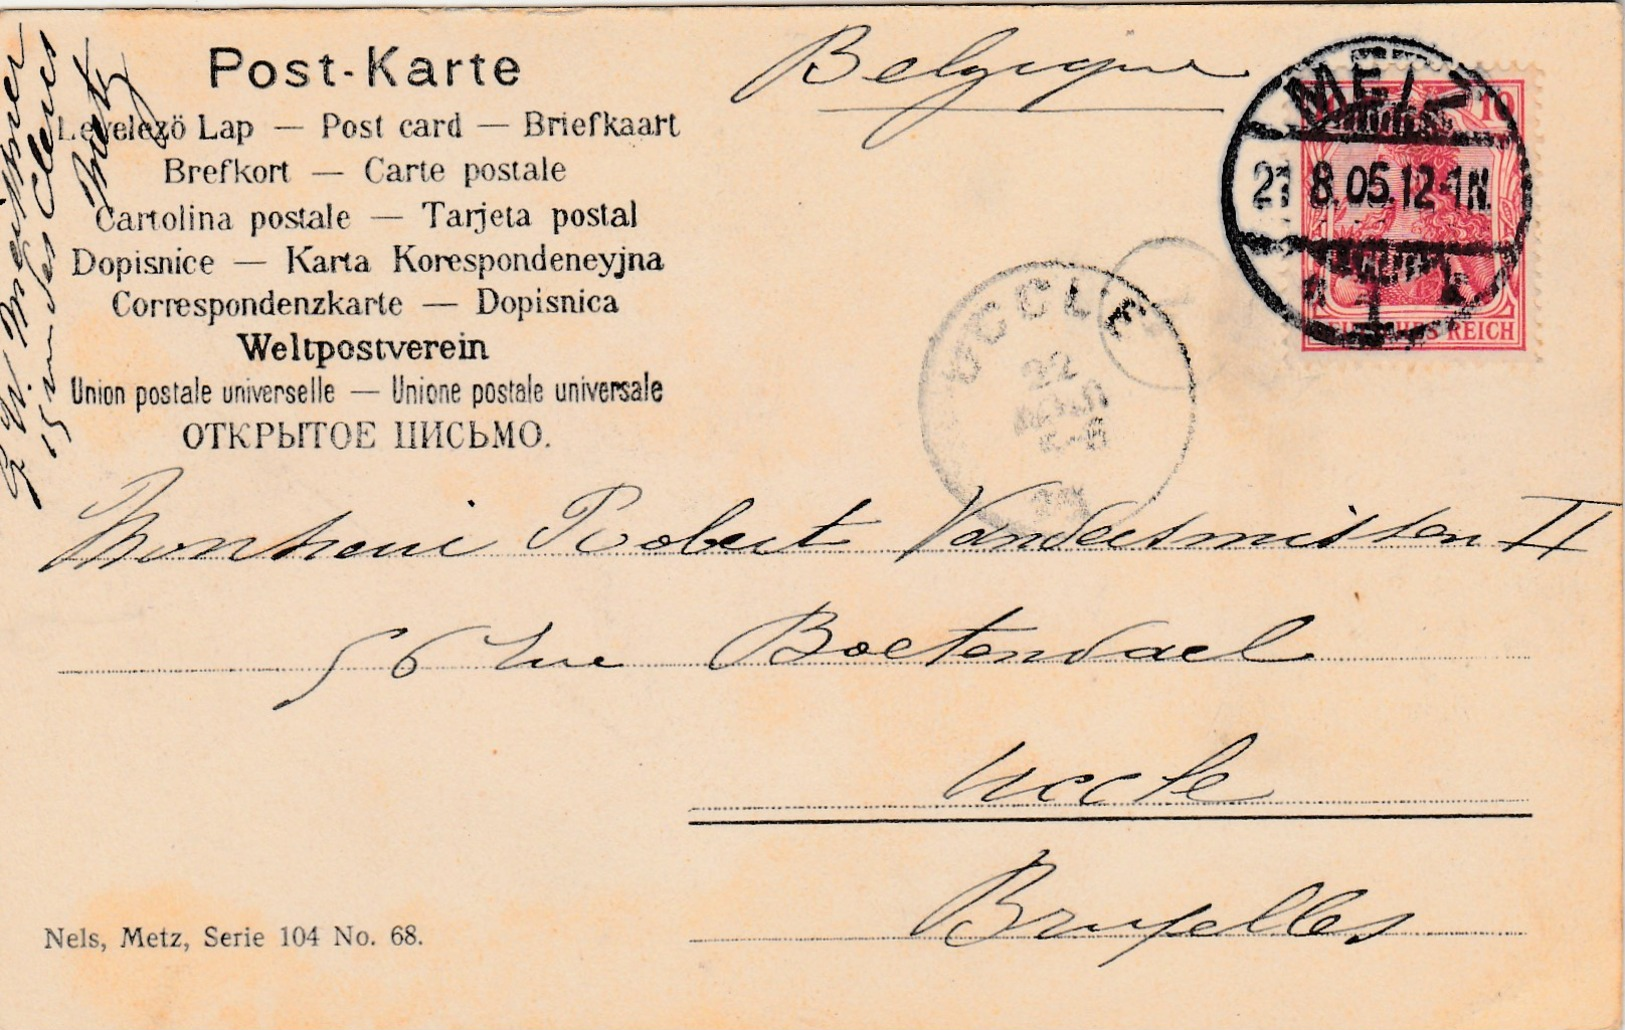 Post-Karte
Levelező Lap — Post card — Briefkaart
Brefkort — Carte postale
Cartolina postale — Tarjeta postal
Dopisnice — Karta Korespondeneyjna
Correspondenzkarte — Dopisnica
Weltpostverein
Union postale universelle — Unione postale universale
ОТКРЫТОЕ ПИСЬМО.
Metz
Belgique
METZ
21 8.05.12-1N.
1
10
REICH
UCCLE
22
Monsieur Robert Vandersmissen II
56 rue Boetendael
Uccle
Bruxelles
Nels, Metz, Serie 104 No. 68.